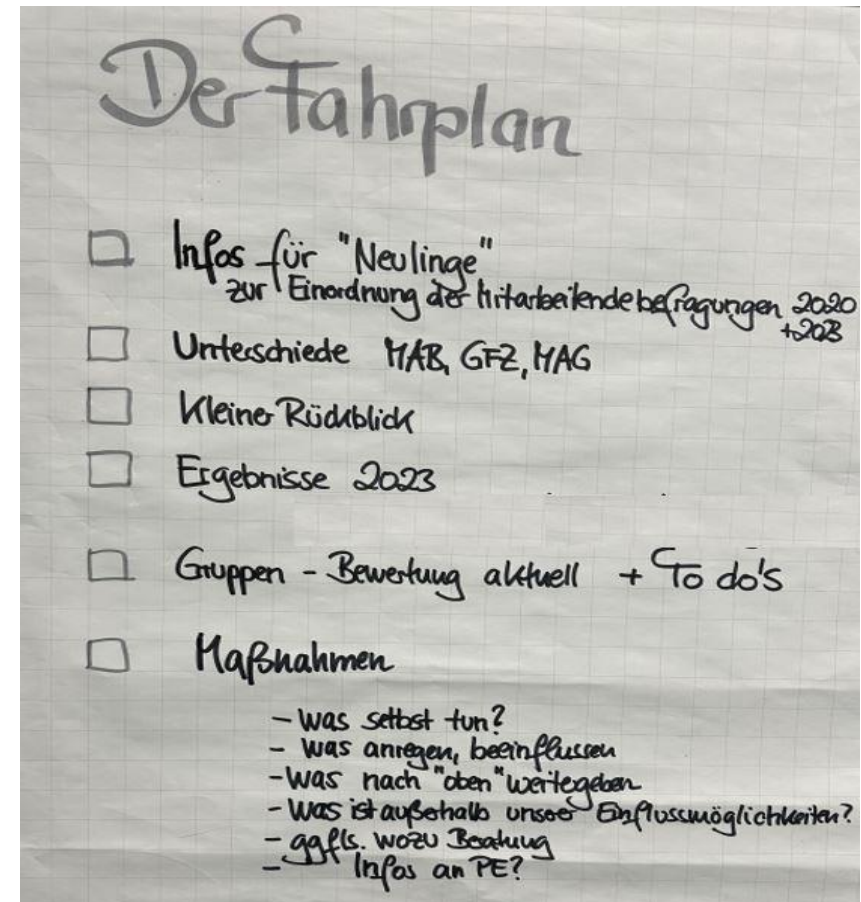 Der Fahrplan
Infos für "Neulinge"
zur Einordnung der Mitarbeitendebefragungen 2020
+2023
Unterschiede MAB, GFZ, MAG
Kleiner Rückblick
Ergebnisse 2023
Gruppen - Bewertung aktuell + To do's
Maßnahmen
- Was selbst tun?
- Was anregen, beeinflussen
- Was nach "oben" weitergeben
- Was ist außerhalb unserer Einflussmöglichkeiten?
- ggfls. wozu Beratung
- Infos an PE?